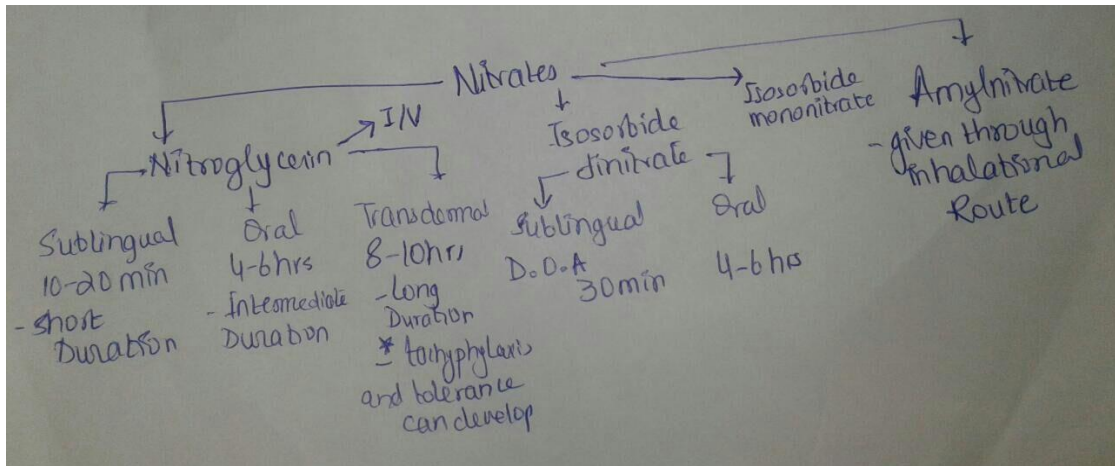 Nitrates
Nitroglycerin
I/V
Sublingual
10-20 min
- short
Duration
Oral
4-6hrs
- Intermediate
Duration
Transdermal
8-10hrs
- Long
Duration
* tachyphylaxis
and tolerance
can develop
Isosorbide
dinitrate
Sublingual
D.O.A
30min
Oral
4-6 hrs
Isosorbide
mononitrate
Amylnitrate
- given through
inhalational
Route